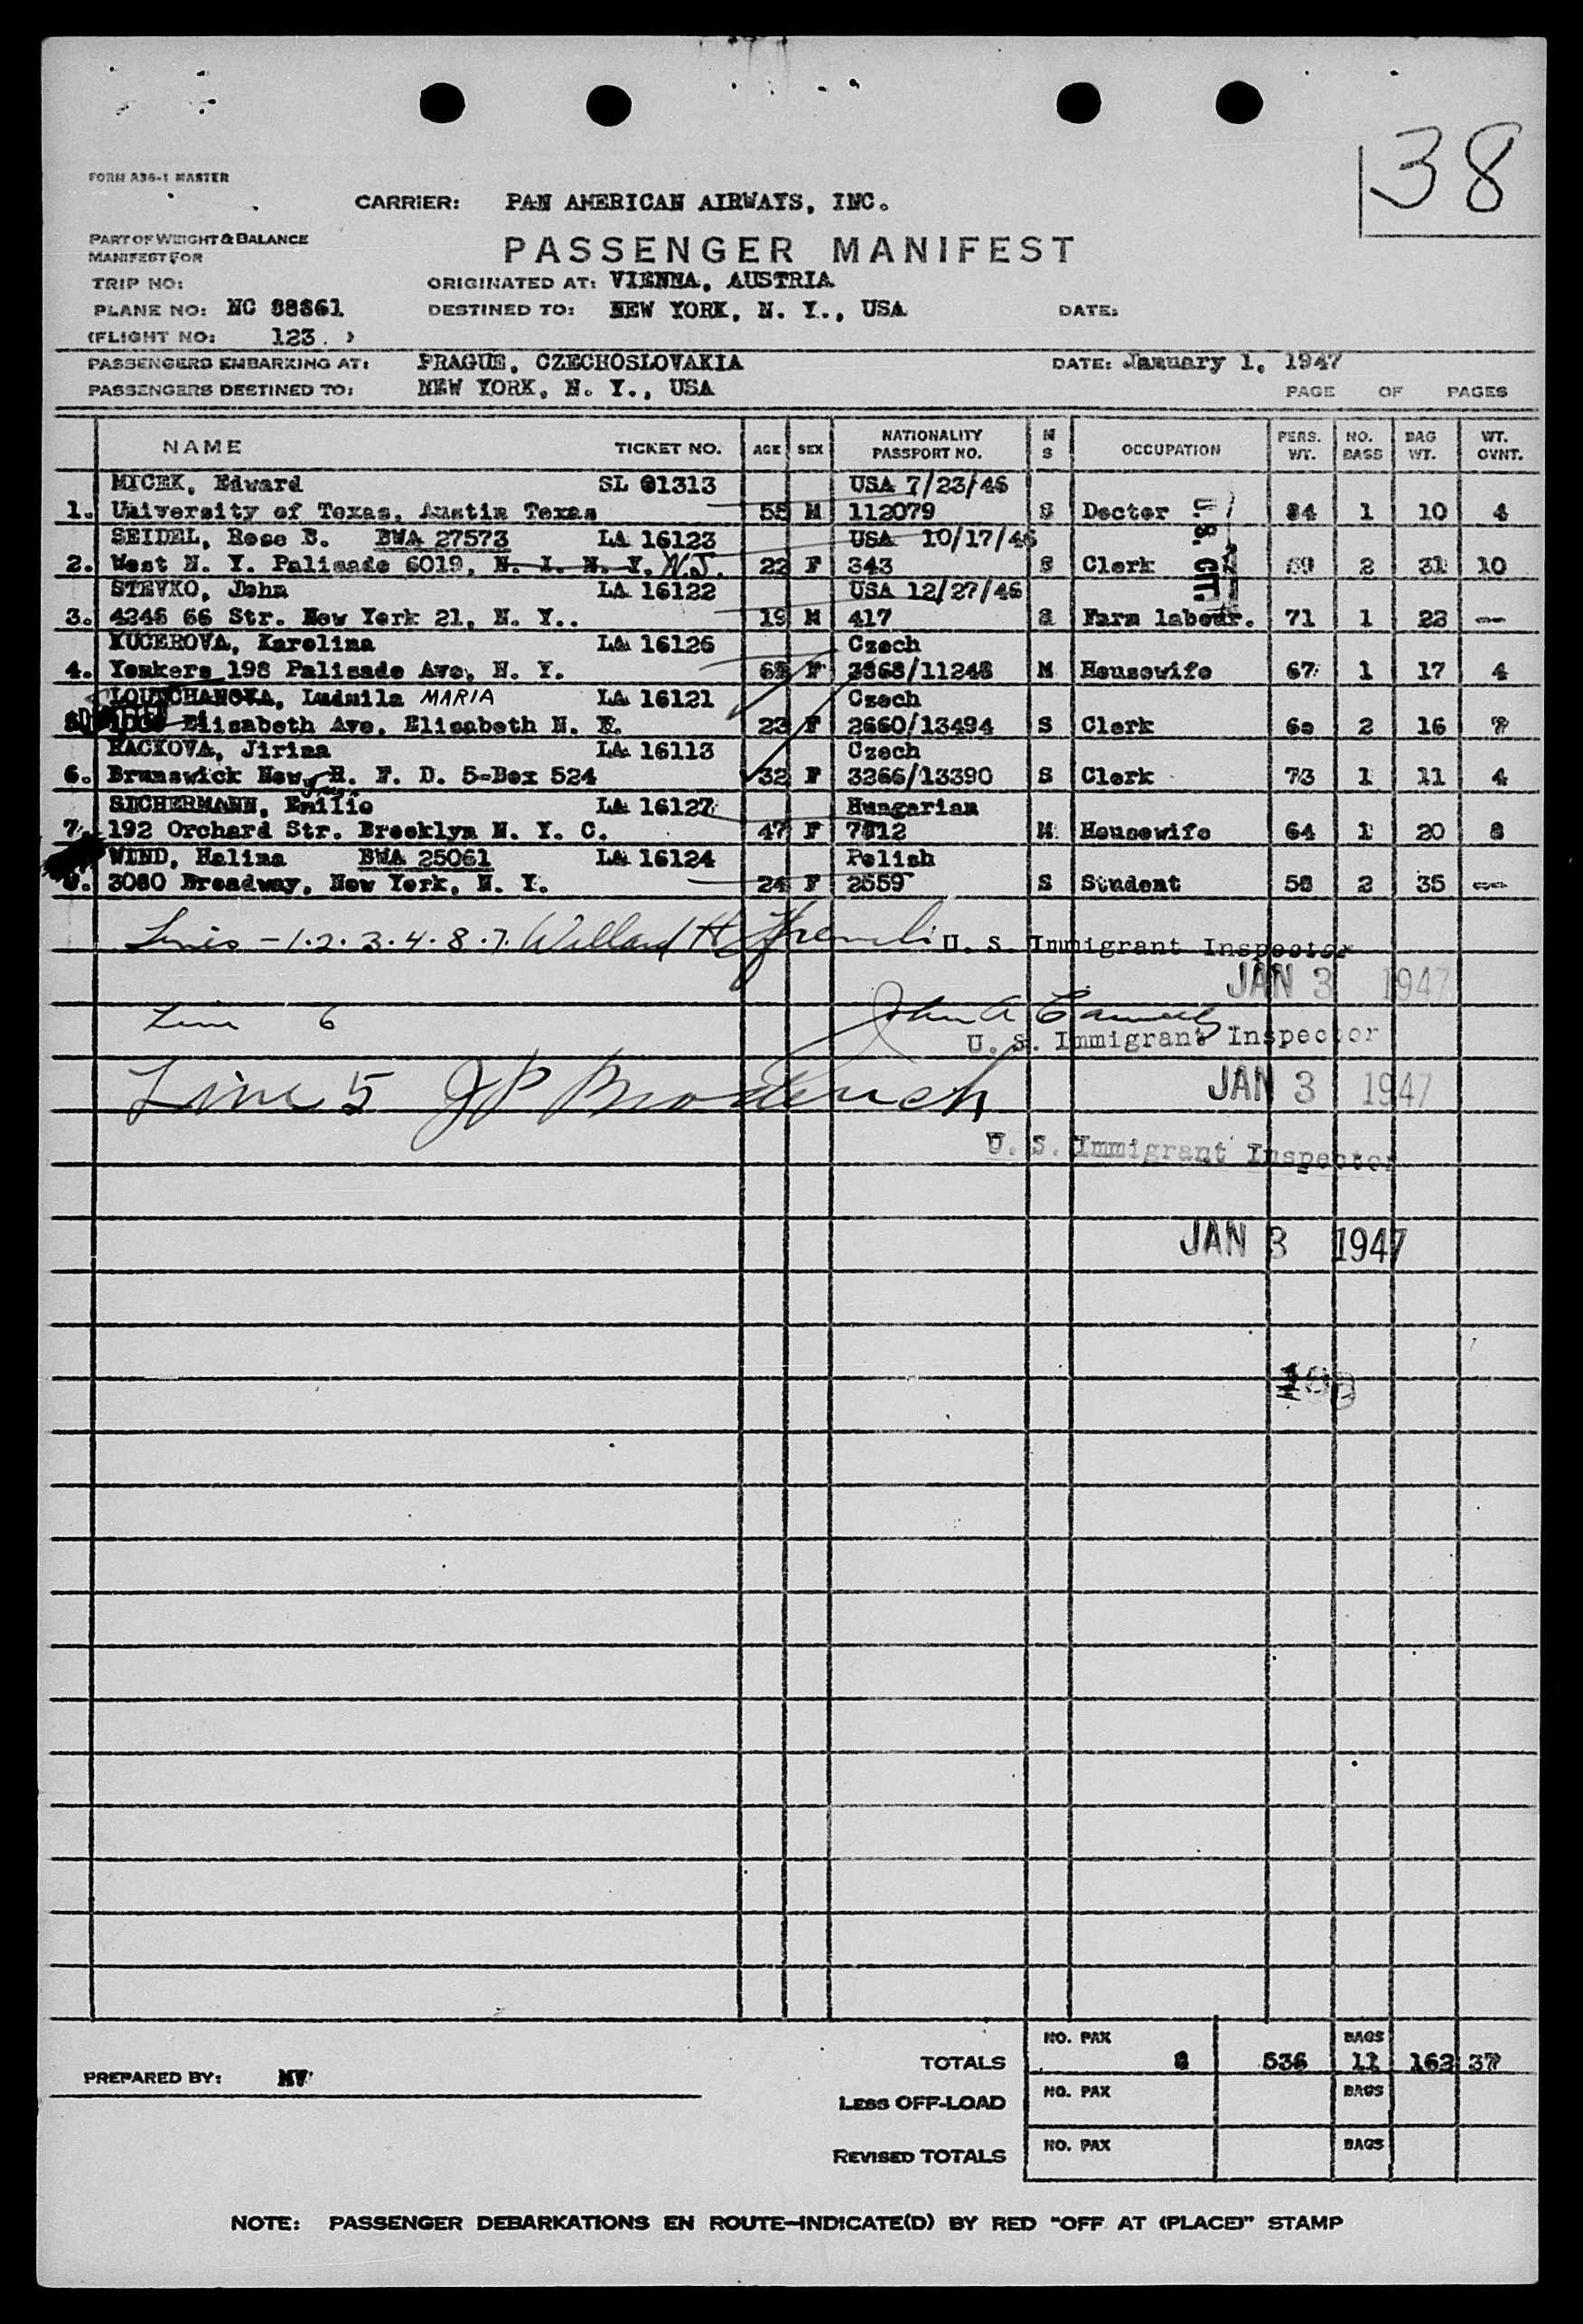 38
FORM A36-1 MASTER
CARRIER: PAN AMERICAN AIRWAYS, INC.
PART OF WEIGHT & BALANCE
MANIFEST FOR
PASSENGER MANIFEST
TRIP NO: ORIGINATED AT: VIENNA, AUSTRIA
PLANE NO: NC 88861 DESTINED TO: NEW YORK, N. Y., USA DATE:
(FLIGHT NO: 123. )
PASSENGERS EMBARKING AT: PRAGUE, CZECHOSLOVAKIA DATE: January 1, 1947
PASSENGERS DESTINED TO: NEW YORK, N. Y., USA PAGE OF PAGES
NAME TICKET NO. AGE SEX NATIONALITY PASSPORT NO. M S OCCUPATION PERS. WT. NO. BAGS BAG WT. WT. OVNT.
MICEK, Edward SL 01313 USA 7/23/46
1. University of Texas, Austin Texas 55 M 112079 S Doctor 84 1 10 4
SEIDEL, Rose B. BWA 27573 LA 16123 USA 10/17/46
2. West N. Y. Palisade 6019, N. I. N. Y. N.J. 22 F 343 S Clerk 59 2 31 10
STEVKO, John LA 16122 USA 12/27/46
3. 4246 66 Str. New York 21, N. Y.. 19 M 417 S Farm labour. 71 1 22 --
U. S. CIT.
KUCEROVA, Karolina LA 16126 Czech
4. Yonkers 198 Palisade Ave, N. Y. F 3368/11248 M Housewife 67 1 17 4
LOUTCHANOVA, Ludmila MARIA LA 16121 Czech
Elisabeth Ave, Elisabeth N. 23 F 2660/13494 S Clerk 60 2 16 7
HACKOVA, Jirina LA 16113 Czech
6. Brunswick New R. F. D. 5-Box 524 32 F 3266/13390 S Clerk 73 1 11 4
SICHERMANN, Emilie LA 16127 Hungarian
7. 192 Orchard Str. Brooklyn N. Y. C. 47 F 7812 M Housewife 64 1 20 8
WIND, Halina BWA 25061 LA 16124 Polish
8. 3080 Broadway, New York, N. Y. 24 F 2559 S Student 58 2 35 --
Lines - 1. 2. 3. 4. 8. 7. Willard H U. S. Immigrant Inspector
JAN 3 1947
Line 6 John A
U. S. Immigrant Inspector
JAN 3 1947
Line 5 JP Broderick
U. S. Immigrant Inspector
JAN 3 1947
TOTALS NO. PAX 8 536 BAGS 11 162 37
PREPARED BY:
LESS OFF-LOAD NO. PAX BAGS
REVISED TOTALS NO. PAX BAGS
NOTE: PASSENGER DEBARKATIONS EN ROUTE—INDICATE(D) BY RED "OFF AT (PLACE)" STAMP